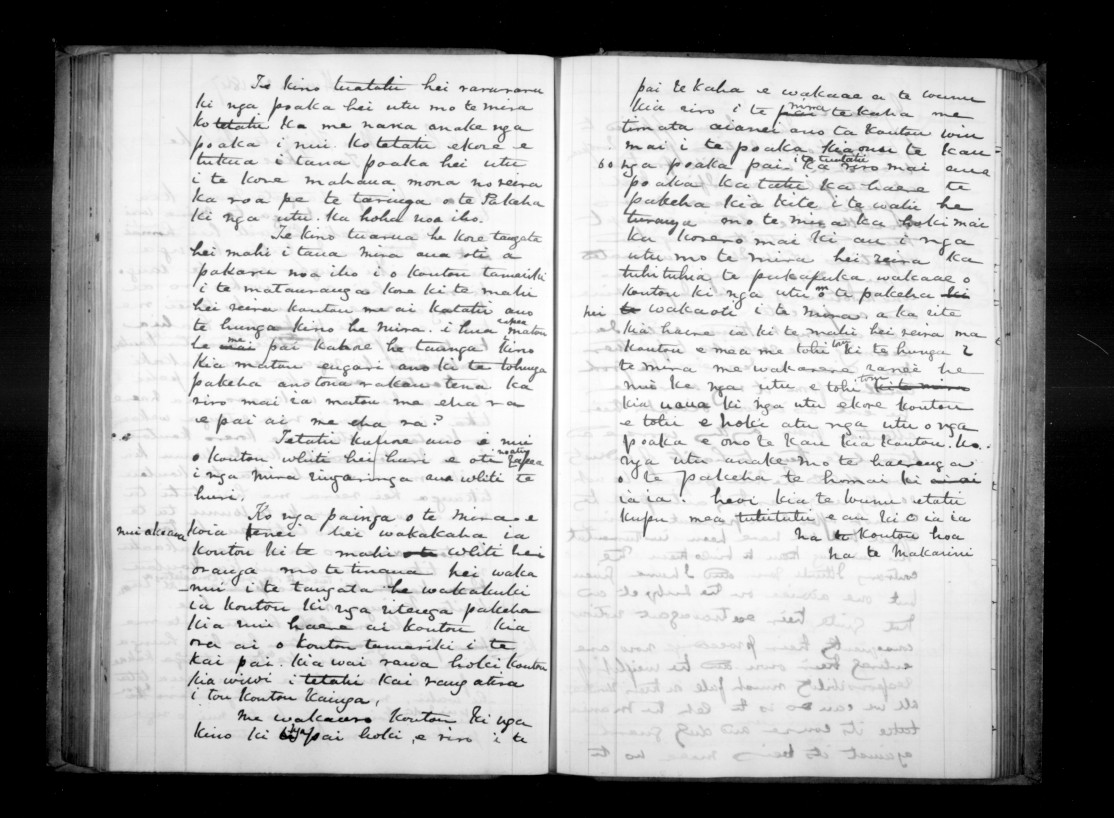 Te kino tuatahi hei raruraru
ki nga poaka hei utu mo te mira
ko tetahi ka me nana anake nga
poaka i nui. Ko tetahi ekore e
tukua i tana poaka hei utu
i te kore mahana mona no reira
ka roa pe te taringa o te Pakeha
ki nga utu. Ka hoha noa iho.
Te kino tuarua he kore tangata
hei mahi i taua mira ana oti a
pakaru noa iho i o koutou tamariki
i te matauranga kore ki te mahi
hei reira koutou me ai katahi ano
te hunga kino he mira. i hua matou
he pai kahore he taanga kino
kia matou engari ano ki te tohunga
pakeha ano tona rakau tena ka
riro mai ia matou me eha ra
e pai ai me eha ra?
Tetahi kahore ano i nui
o koutou whiti hei huri e oti noatia
i nga mira ringaringa ana whiti te
huri.
Ko nga painga o te mira. e
nui ake ana koia tenei hei wakakaha ia
koutou ki te mahi whiti hei
oranga mo te tinana hei waka
nui i te tangata he wakahuki
ia koutou ki nga ritenga pakeha
kia nui haere ai koutou kia
ora ai o koutou tamariki i te
kai pai. kia wai rawa hoki koutou
kia wiwi i tetahi kai rangatira
i tou koutou kainga,
me wakaaro koutou ki nga
kino ki nga pai hoki, e riro i te
pai te kaha e wakaae a te wunu
kia riro i te mira te kaha me
timata aianei ano ta koutou wini
mai i te poaka kiaono te kau
60 nga poaka pai. i te tuatahi ka riro mai ana
poaka ka tahi ka haere te
pakeha kia kite i te wahi he
turanga mo te mira ka hoki mai
ka korero mai ki au i nga
utu mo te mira hei reira ka
tuhituhia te pukapuka wakaae o
koutou ki nga utu o te pakeha
hei wakaoti i te mira a ka rite
kia haere ia ki te mahi hei reira ma
koutou e mea me tohi ki te hunga 2
te mira me wakarera ranei he
nui ke nga utu e tohi
kia uaua ki nga utu ekore koutou
e tohu e hoki atu nga utu o nga
poaka e ono te kau kia koutou. ko
nga utu anake mo te haerenga
o te pakeha te homai ki
ia ia. heoi kia te wunu etahi
kupu mea tuhituhi e au ki a ia ia
Na to koutou hoa
Na te Makarini